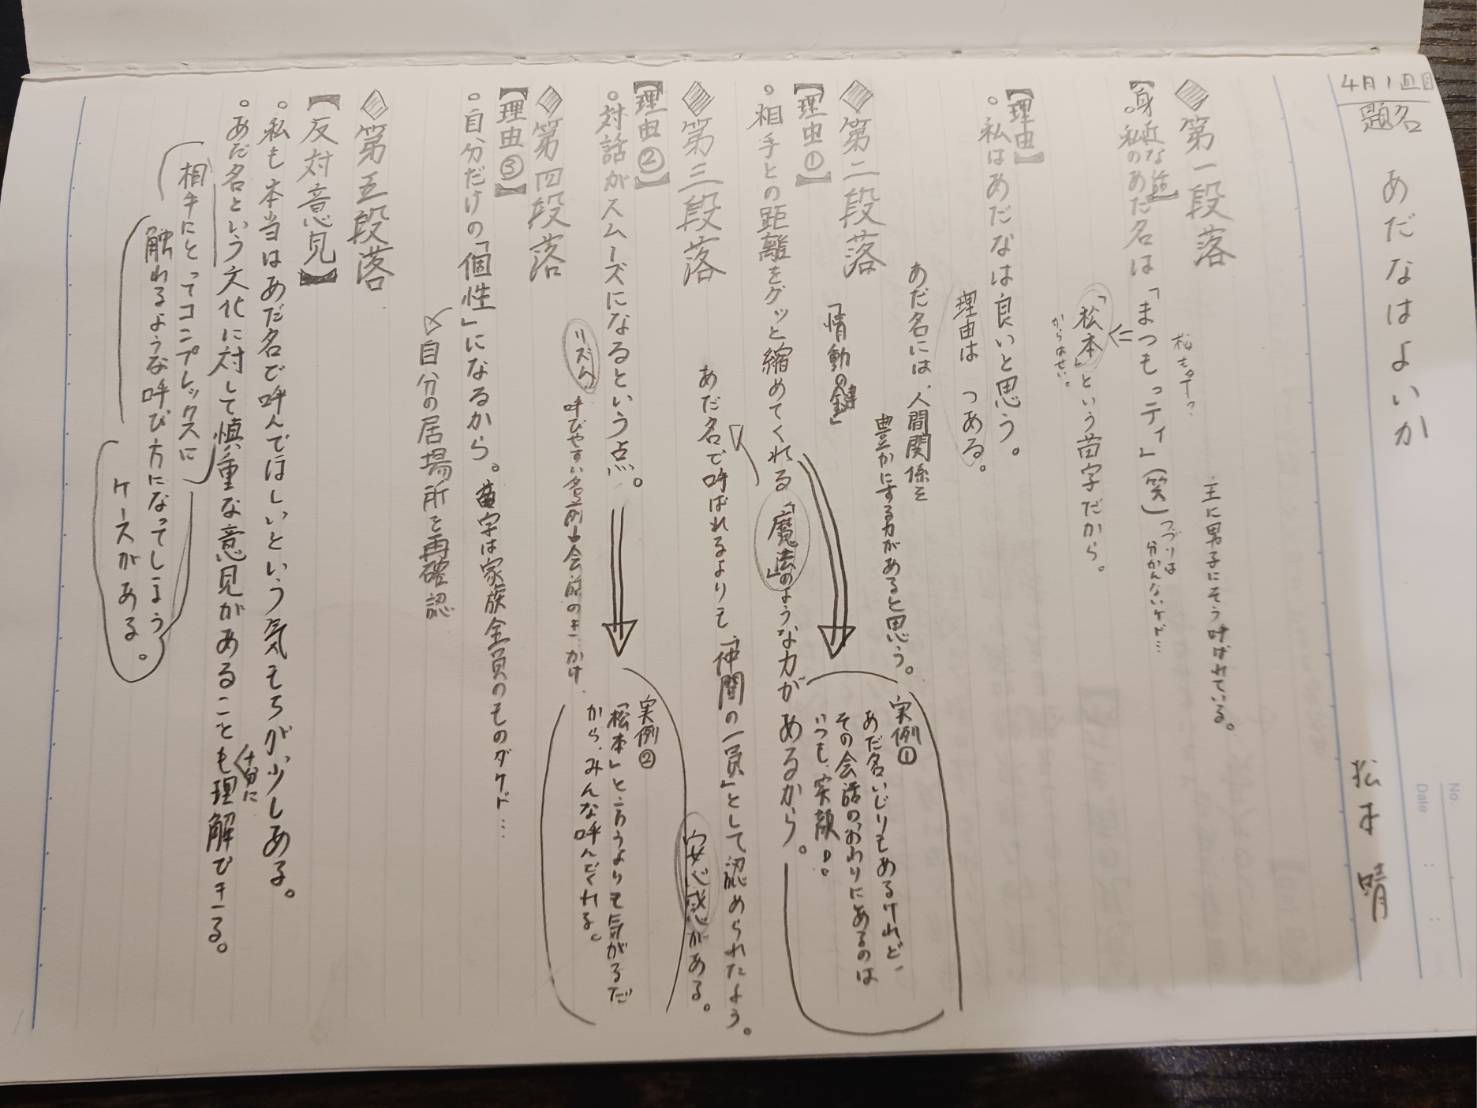 4月1週目
題名
あだなはよいか
松本 晴
No.
Date
◇第一段落
主に男子にそう呼ばれている。
【身近な話】
。私のあだ名は「まつもっティ」(笑)
つづりは
分かんないケド…
「松本」という苗字だから。
からはせい。
【理由】
。私はあだなは良いと思う。
理由は つある。
あだ名には、人間関係を
豊かにする力があると思う。
◇第二段落
「情動の鍵」
【理由①】
。相手との距離をグッと縮めてくれる「魔法」のような力があるから。
実例①
あだ名いじりもあるけれど、
その会話のおわりにあるのは
いつも、笑顔。
あだ名で呼ばれるよりも「仲間の一員」として認められたよう。
安心感がある。
◇第三段落
【理由②】
。対話がスムーズになるという点。
リズム
呼びやすい名前は会話のきっかけ
実例②
「松本」と言うよりも気がるだ
から、みんな呼んでくれる。
◇第四段落
【理由③】
。自分だけの「個性」になるから。苗字は家族全員のものダケド…
自分の居場所を再確認
◇第五段落
【反対意見】
。私も本当はあだ名で呼んでほしいという気もちが少しある。
。あだ名という文化に対して慎重な意見があることも十分に理解できる。
相手にとってコンプレックスに
触れるような呼び方になってしまう
ケースがある。